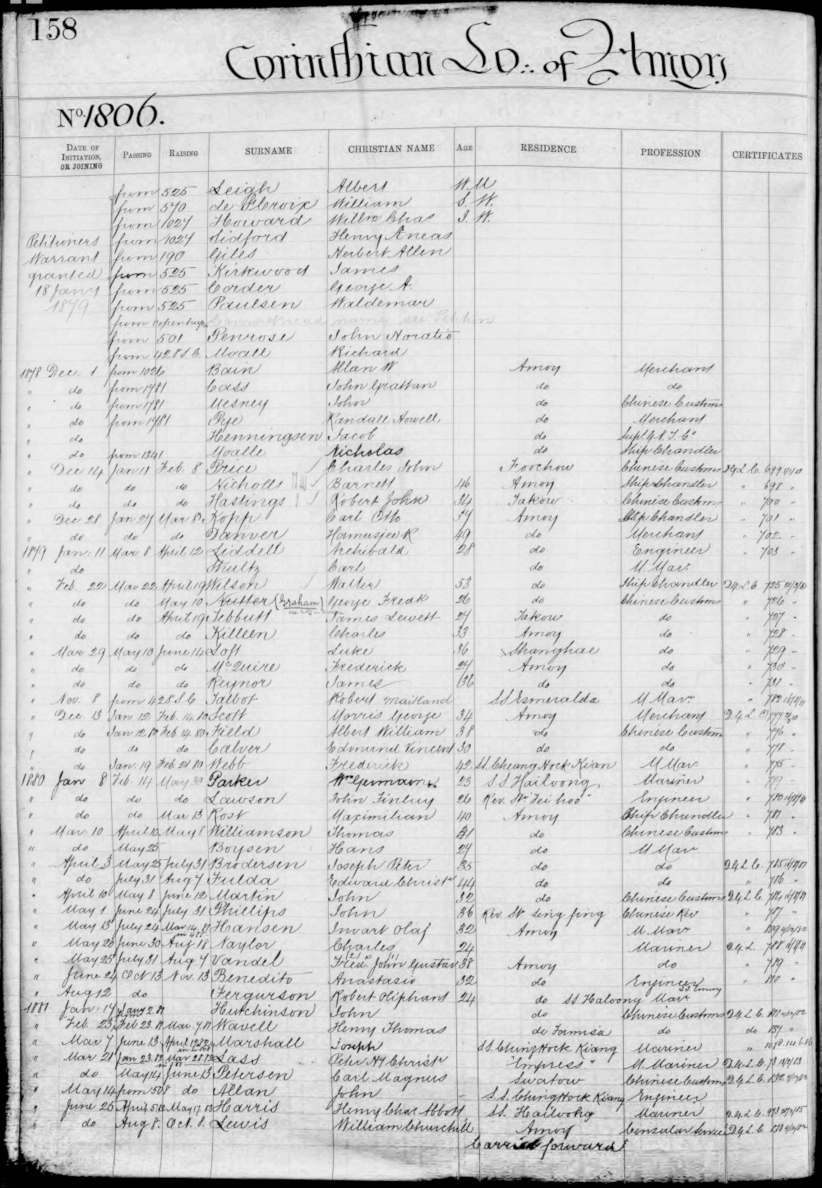 158
Corinthian Lo: of Amoy
No. 1806.
DATE OF INITIATION, OR JOINING PASSING RAISING SURNAME CHRISTIAN NAME Age RESIDENCE PROFESSION CERTIFICATES
from 525 Leigh Albert W. M
from 570 de St Croix William S. W.
from 1027 Howard Willm Chas J. W.
Petitioners from 1027 Sidford Henry Aneas
Warrant from 190 Giles Herbert Allen
granted from 525 Kirkwood James
18 Jany from 525 Corder George A.
1879 from 525 Paulsen Waldemar
from Copenhagen name see Petition
from 501 Penrose John Horatio
from 428 S.C. Moalle Richard
1878 Dec. 1 from 1026 Bain Allan W Amoy Merchant
" do from 1781 Cass John Grattan do do
" do from 1781 Mesney John do Chinese Customs
" do from 1781 Pye Randall Howell do Merchant
" do Henningsen Jacob do
" do from 1341 Moalle Nicholas do Ship Chandler
" Dec 14 Jan 11 Feb 8 Price Charles John Foochow Chinese Customs D.G.L.C. 699
" do do do Nicholls Barnett 46 Amoy Ship Chandler " 698 "
" do do do Hastings Robert John 34 Takow Chinese Customs " 700 "
" Dec 28 Jan 27 Mar 8 Kopp Carl Otto 37 Amoy Ship Chandler " 701 "
" do do do Tanver Hormusjee R 49 do Merchant " 702 "
1879 Jan: 11 Mar 8 April 12 Liddell Archibald 28 do Engineer " 703 "
" do Shultz Carl do M. Mar.
" Feb 22 Mar 22 April 19 Wilson Walter 53 do Ship Chandler D.G.L.C 725
" do do May 10 Hutter (Graham) George Fredk 26 do Chinese Customs " 726 "
" do do April 19 Tebbutt James Lewett 27 Takow do " 727 "
" do do do Killeen Charles 33 Amoy do " 728 "
" Mar 29 May 10 June 14 Loft Luke 36 Shanghae do " 729 "
" do do do McQuire Frederick 27 Amoy do " 730 "
" do do do Reynor James 36 do do " 731 "
" Nov. 8 from 428 S.C Talbot Robert Maitland S.S Esmeralda M Mar. " 782
" Dec 13 Jan 12 Feb. 14 80 Scott Morris George 34 Amoy Merchant D.G.L.C 777
" do Jan 12 80 Feb 14 80 Field Albert William 38 do Chinese Customs " 776 "
" do do do Calver Edmund Vincent 30 do do " 771 "
" do Jan: 19 Feb 21 80 Webb Frederick 42 St. Cheung Hock Kian M Mar " 775 "
1880 Jan 8 Feb. 14 May 30 Parker Wm Germain 23 S S Hailoong Mariner " 779 "
" do do do Lawson John Finlay 26 Rev. Str. Fei hoo Engineer " 780
" do do Mar 13 Rost Maximilian 40 Amoy Ship Chandler " 781 "
" Mar 10 April 10 May 8 Williamson Thomas 31 do Chinese Customs " 783 "
" do May 25 Boysen Hans 27 do M Mar
" April 3 May 25 July 31 Brodersen Joseph Peter 35 do do D.G.L.C. 785
" do July 31 Aug 7 Fulda Edward Christr 44 do do " 786 "
" April 10 May 8 June 12 Martin John 32 do Chinese Customs D.G.L.C. 786
" May 1 June 24 July 31 Phillips John 36 Rev. Str. Ling Fing Chinese Rev " 787 "
" May 13 July 24 Mar 14 81 Hansen Invart Olaf 32 Amoy M Mar " 809
" May 26 June 30 Aug 18 Naylor Charles 24 Mariner D.G.L. 788
" May 25 July 31 Aug 7 Vandel Fred John Gustav 38 Amoy do " 789 "
" June 24 Oct 13 Nov. 13 Benedito Anastasio 32 do Engineer " 810 "
" Aug 12 do Fergurson Robert Oliphant 24 do S.S. Haloong Mar
1881 Jan: 17 Hutchinson John do Chinese Customs D.G.L.C. 811
" Feb. 23 Feb 23 81 Mar. 7 81 Wavell Henry Thomas do Formosa do do 837 "
" Mar 7 June 13 April 1882 Marshall Joseph S.S. Ching Hock Kiang Mariner " 1078
" Mar 21 Jan 23 82 Mar 28 82 Lass Peter Hy Christr "Empress" M. Mariner D.G.L.C.
" do May 14 June 13 Petersen Carl Magnus Swatow Chinese Customs D.G.L.C. 832
" May 14 from 508 do Allan John - S.S. Ching Hock Kiang Engineer
" June 25 April 5 82 May 17 82 Harris Henry Chas Abbott S.S. Hailoong Mariner D.G.L.C.
" do Aug 8. Oct. 8 Lewis William Churchill Amoy Consular Service D.G.L.C 838
Carried forward